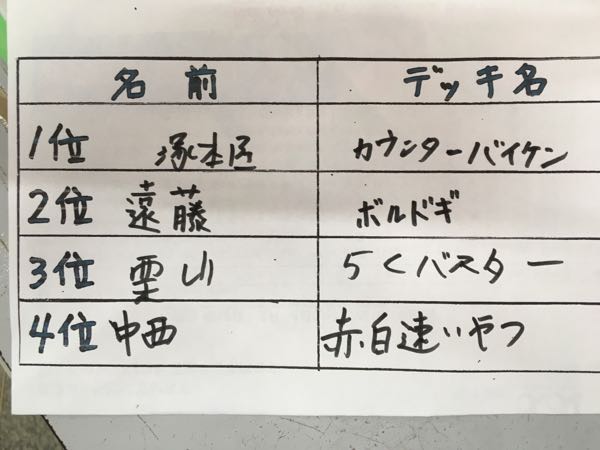 名前 デッキ名
1位 塚本匠 カウンターバイケン
2位 遠藤 ボルドギ
3位 栗山 5Cバスター
4位 中西 赤白速いやつ